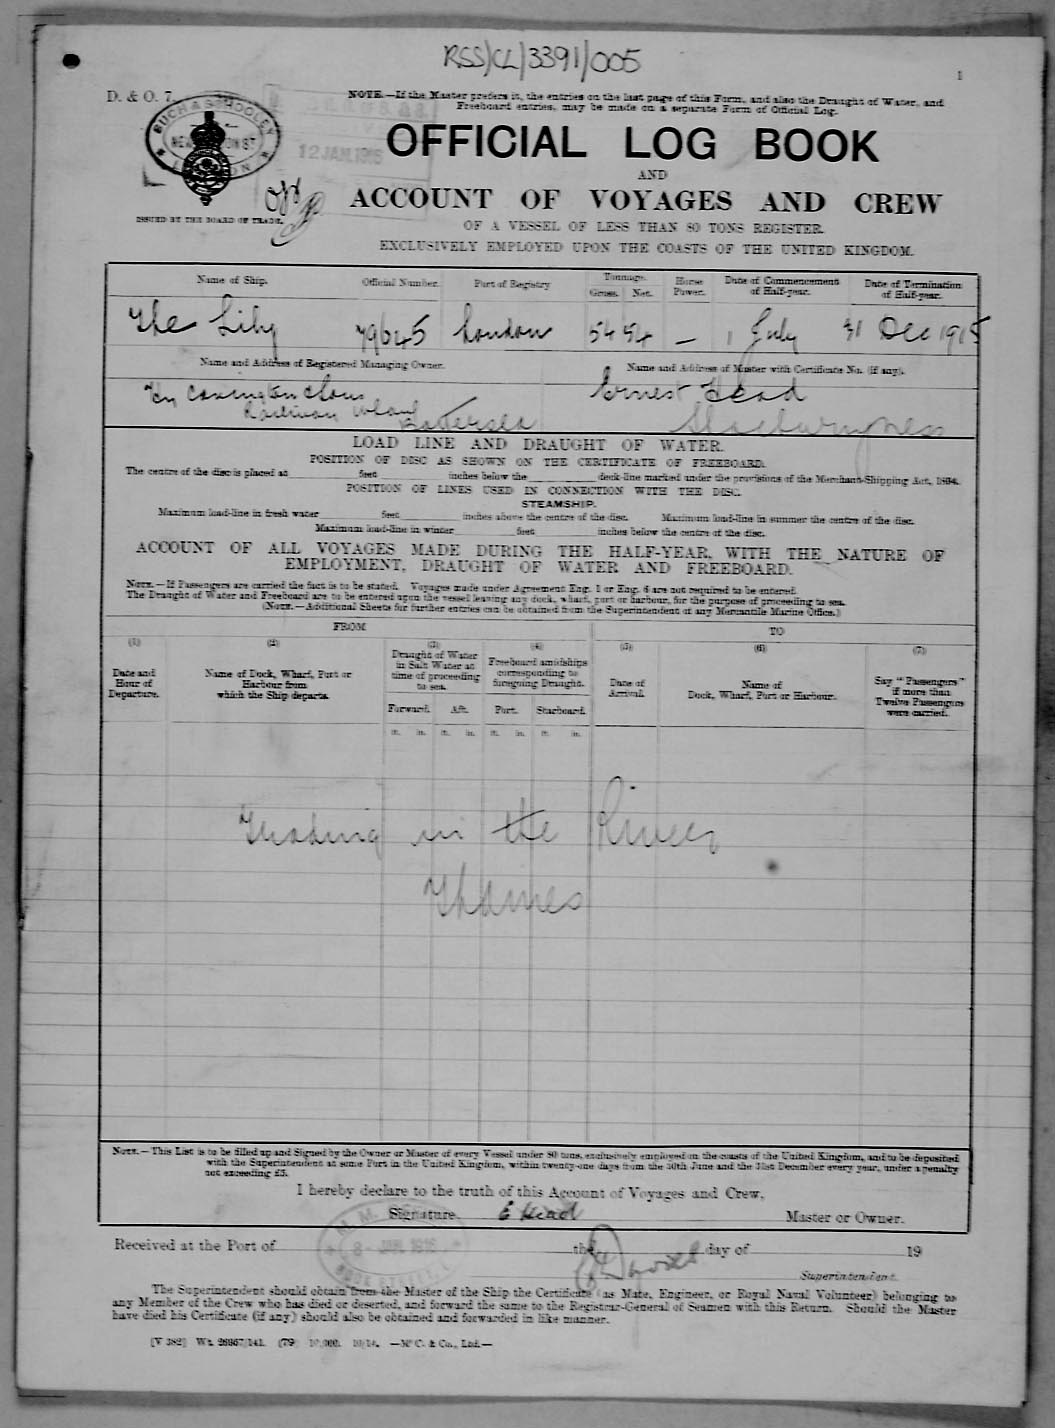 RSS/CL/3391/005
1
D. & O. 7.
NOTE.—If the Master prefers it, the entries on the last page of this Form, and also the Draught of Water, and
Freeboard entries, may be made on a separate Form of Official Log.
12 JAN. 1916
OFFICIAL LOG BOOK
AND
ACCOUNT OF VOYAGES AND CREW
ISSUED BY THE BOARD OF TRADE.
OF A VESSEL OF LESS THAN 80 TONS REGISTER
EXCLUSIVELY EMPLOYED UPON THE COASTS OF THE UNITED KINGDOM.
Name of Ship. Official Number. Port of Registry Tonnage. Gross. Net. Horse Power. Date of Commencement of Half-year. Date of Termination of Half-year.
The Lily 79645 London 54 54 — 1 July 31 Dec 1915
Name and Address of Registered Managing Owner. Name and Address of Master with Certificate No. (if any).
Hy Covington & Sons Ernest Head
Railway Wharf
Battersea Shoeburyness
LOAD LINE AND DRAUGHT OF WATER.
POSITION OF DISC AS SHOWN ON THE CERTIFICATE OF FREEBOARD.
The centre of the disc is placed at feet inches below the deck-line marked under the provisions of the Merchant Shipping Act, 1894.
POSITION OF LINES USED IN CONNECTION WITH THE DISC.
STEAMSHIP.
Maximum load-line in fresh water feet inches above the centre of the disc. Maximum load-line in summer the centre of the disc.
Maximum load-line in winter feet inches below the centre of the disc.
ACCOUNT OF ALL VOYAGES MADE DURING THE HALF-YEAR, WITH THE NATURE OF
EMPLOYMENT, DRAUGHT OF WATER AND FREEBOARD.
NOTE.—If Passengers are carried the fact is to be stated. Voyages made under Agreement Eng. 1 or Eng. 6 are not required to be entered.
The Draught of Water and Freeboard are to be entered upon the vessel leaving any dock, wharf, port or harbour, for the purpose of proceeding to sea.
(NOTE.—Additional Sheets for further entries can be obtained from the Superintendent of any Mercantile Marine Office.)
FROM TO
(1) (2) (3) (4) (5) (6) (7)
Date and Hour of Departure.
Name of Dock, Wharf, Port or Harbour from which the Ship departs.
Draught of Water in Salt Water at time of proceeding to sea.
Freeboard amidships corresponding to foregoing Draught.
Date of Arrival.
Name of Dock, Wharf, Port or Harbour.
Say "Passengers" if more than Twelve Passengers were carried.
Forward. Aft. Port. Starboard.
ft. in. ft. in. ft. in. ft. in.
Trading in the River
Thames
NOTE.—This List is to be filled up and Signed by the Owner or Master of every Vessel under 80 tons, exclusively employed on the coasts of the United Kingdom, and to be deposited
with the Superintendent at some Port in the United Kingdom, within twenty-one days from the 30th June and the 31st December every year, under a penalty
not exceeding £5.
I hereby declare to the truth of this Account of Voyages and Crew,
Signature E Head Master or Owner.
8 - JAN. 1916
Received at the Port of the day of 19
Superintendent.
The Superintendent should obtain from the Master of the Ship the Certificate (as Mate, Engineer, or Royal Naval Volunteer) belonging to
any Member of the Crew who has died or deserted, and forward the same to the Registrar-General of Seamen with this Return. Should the Master
have died his Certificate (if any) should also be obtained and forwarded in like manner.